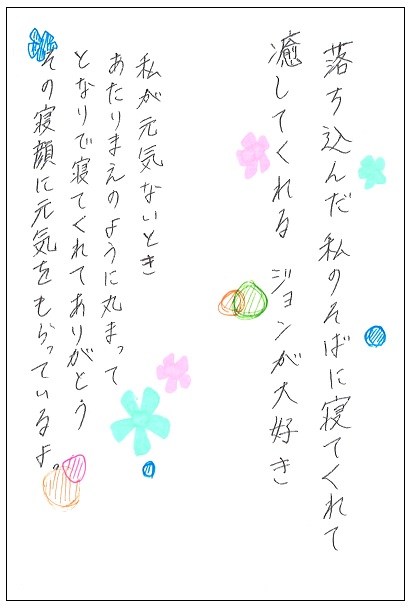 落ち込んだ 私のそばに寝てくれて
癒してくれる ジョンが大好き
私が元気ないとき
あたりまえのように丸まって
となりで寝てくれてありがとう
その寝顔に元気をもらっているよ。